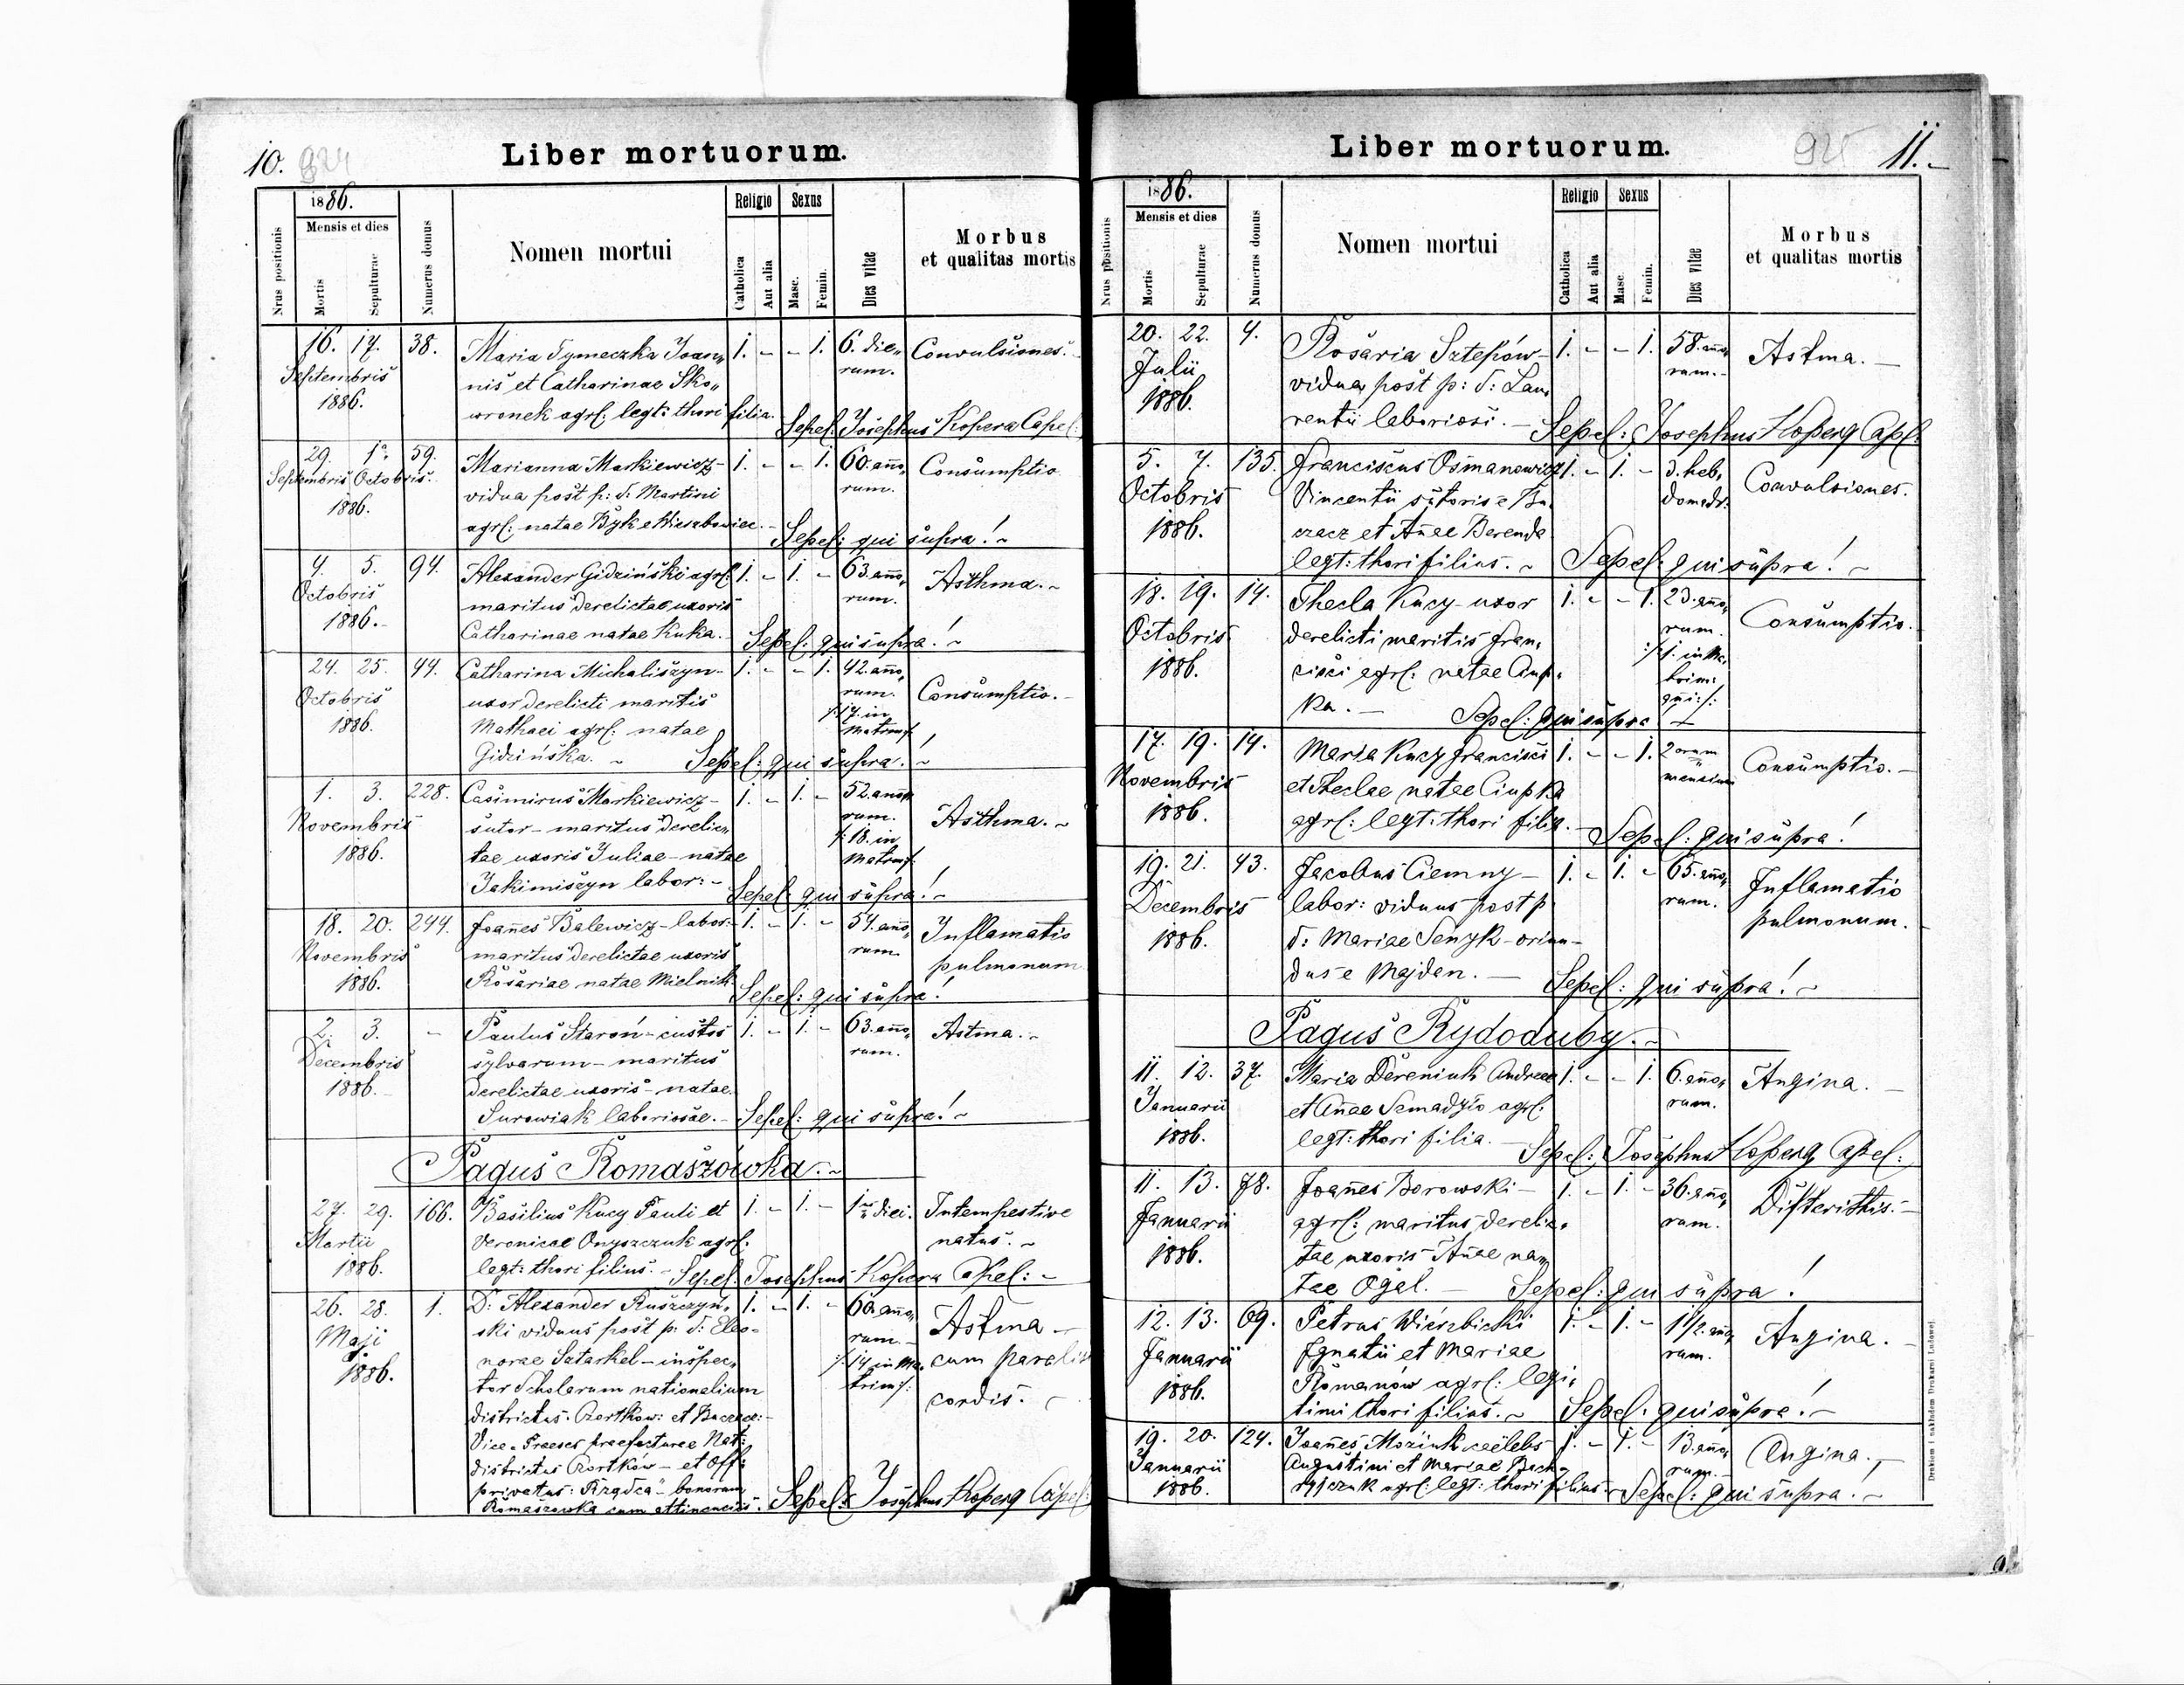 10. 924
Liber mortuorum.
1886.
Mensis et dies
Nrus positionis
Mortis
Sepulturae
Numerus domus
Nomen mortui
Religio
Catholica
Aut alia
Sexus
Masc.
Femin.
Dies vitae
Morbus
et qualitas mortis
16. 17. 38. Maria Tymeczka Joan„ 1. - - 1. 6. die„ Convulsiones.
Septembris nis et Catharinae Sko„ rum.
1886. wronek agrl: legt: thori filia. Sepel: Josephus Kopera Capel:
29. 1a 59. Marianna Markiewicz- 1. - - 1. 60. anno„ Consumptio
Septembris Octobris. vidua post p: d: Martini rum.
1886. agrl: natae Byk e Wierzbowiec. - Sepel: qui supra! ~
4. 5. 94. Alexander Gidziński agrl: 1. - 1. - 63. anno„ Asthma. ~
Octobris maritus derelictae uxoris rum.
1886. - Catharinae natae Kuka. Sepel: qui supra! ~
24. 25. 44. Catharina Michaliszyn- 1. - - 1. 42. anno„ Consumptio. -
Octobris uxor derelicti maritis rum.
1886. Mathaei agrl: natae /:17. in matrim:/
Gidzińska. ~ Sepel: qui supra! ~
1. 3. 228. Casimirus Markiewicz- 1. - 1. - 52. anno„ Asthma. ~
Novembris sutor - maritus derelic„ rum.
1886. tae uxoris Juliae - natae /:18. in matrim:/
Jakimiszyn labor: - Sepel: qui supra! ~
18. 20. 244. Joañes Balewicz - labor: 1. - 1. - 54. anno„ Inflamatio
Novembris maritus derelictae uxoris rum. pulmonum
1886. Rosariae natae Mielnik. Sepel: qui supra!
2. 3. - Paulus Staroń - custos 1. - 1. - 63. anno„ Astma. ~
Decembris sylvarum - maritus rum.
1886. derelictae uxoris - natae
Surowiak laboriosae. - Sepel: qui supra! ~
Pagus Romaszówka. ~
27. 29. 166. Basilius Kucy Pauli et 1. - 1. - 1us diei. Intempestive
Martii Veronicae Onyszczuk agrl: natus. ~
1886. legt: thori filius. - Sepel: Josephus Kopera Capel: -
26. 28. 1. D: Alexander Ruszczyń„ 1. - 1. - 60. anno„ Astma -
Maji ski viduus post p: d: Eleo- rum. cum paralis
1886. norae Satarkel - inspec„ /:14 in ma„ cordis. -
tor scholarum nationalium trim:/
districtus. Czertków: et Buczacz: -
Vice-Praeses praefecturae Nat:
districtus Czortków - et Off:
privatus: Rządca - bonorum
Romaszówka cum attinenciis. Sepel: Josephus Koperą Capel:
925 11. -
Liber mortuorum.
1886.
Mensis et dies
Nrus positionis
Mortis
Sepulturae
Numerus domus
Nomen mortui
Religio
Catholica
Aut alia
Sexus
Masc.
Femin.
Dies vitae
Morbus
et qualitas mortis
20. 22. 4. Rosaria Sztepów- 1. - - 1. 58. anno„ Astma. -
Julii vidua post p: d: Lau„ rum. -
1886. rentii laboriosi. - Sepel: Josephus Koperą Capl:
5. 7. 135. Franciscus Osmanowicz 1. - 1. - 3. heb„ Convulsiones.
Octobris Vincentii sutoris e Bu„ domadr.
1886. czacz et Añae Berenda
legt: thori filius. ~ Sepel: qui supra! ~
18. 19. 14. Thecla Kucy - uxor 1. - - 1. 23. anno„ Consumptio.
Octobris derelicti maritis Fran„ rum.
1886. cisci agrl: natae Ciup„
ka. - Sepel: qui supra
17. 19. 14. Maria Kucy Francisci 1. - - 1. 2orum Consumptio. -
Novembris et Theclae natae Ciupka mensium
1886. agrl: legt: thori filia. - Sepel: qui supra!
19. 21. 43. Jacobus Ciemny - 1. - 1. - 65. anno„ Inflamatio
Decembris labor: viduus post p rum. pulmonum.
1886. d: Mariae Senyk - oriun-
dus e Majdan. - Sepel: qui supra! ~
Pagus Rydoduby. ~
11. 12. 37. Maria Dereniuk Andreae 1. - - 1. 6. anno„ Angina. -
Januarii et Añae Semadyło agrl: rum.
1886. legt: thori filia. - Sepel: Josephus Koperą Capel:
11. 13. 78. Joañes Borowski - 1. - 1. - 36. anno„ Difteristis. -
Januarii agrl: maritus derelic„ rum.
1886. tae uxoris Añae na„
tae Ogel. - Sepel: qui supra!
12. 13. 69. Petrus Wierzbicki 1. - 1. - 1 1/2. anno„ Angina. -
Januarii Ignatii et Mariae rum.
1886. Romanów agrl: legi„
timi thori filius. ~ Sepel: qui supra! -
19. 20. 124. Joañes Moziuk caelebs 1. - 1. - 13. anno„ Angina. -
Januarii Augustini et Mariae Bech„ rum. -
1886. ryjczuk agrl: legt: thori filius - Sepel: qui supra! ~
Drukiem i nakładem Drukarni Ludowej.